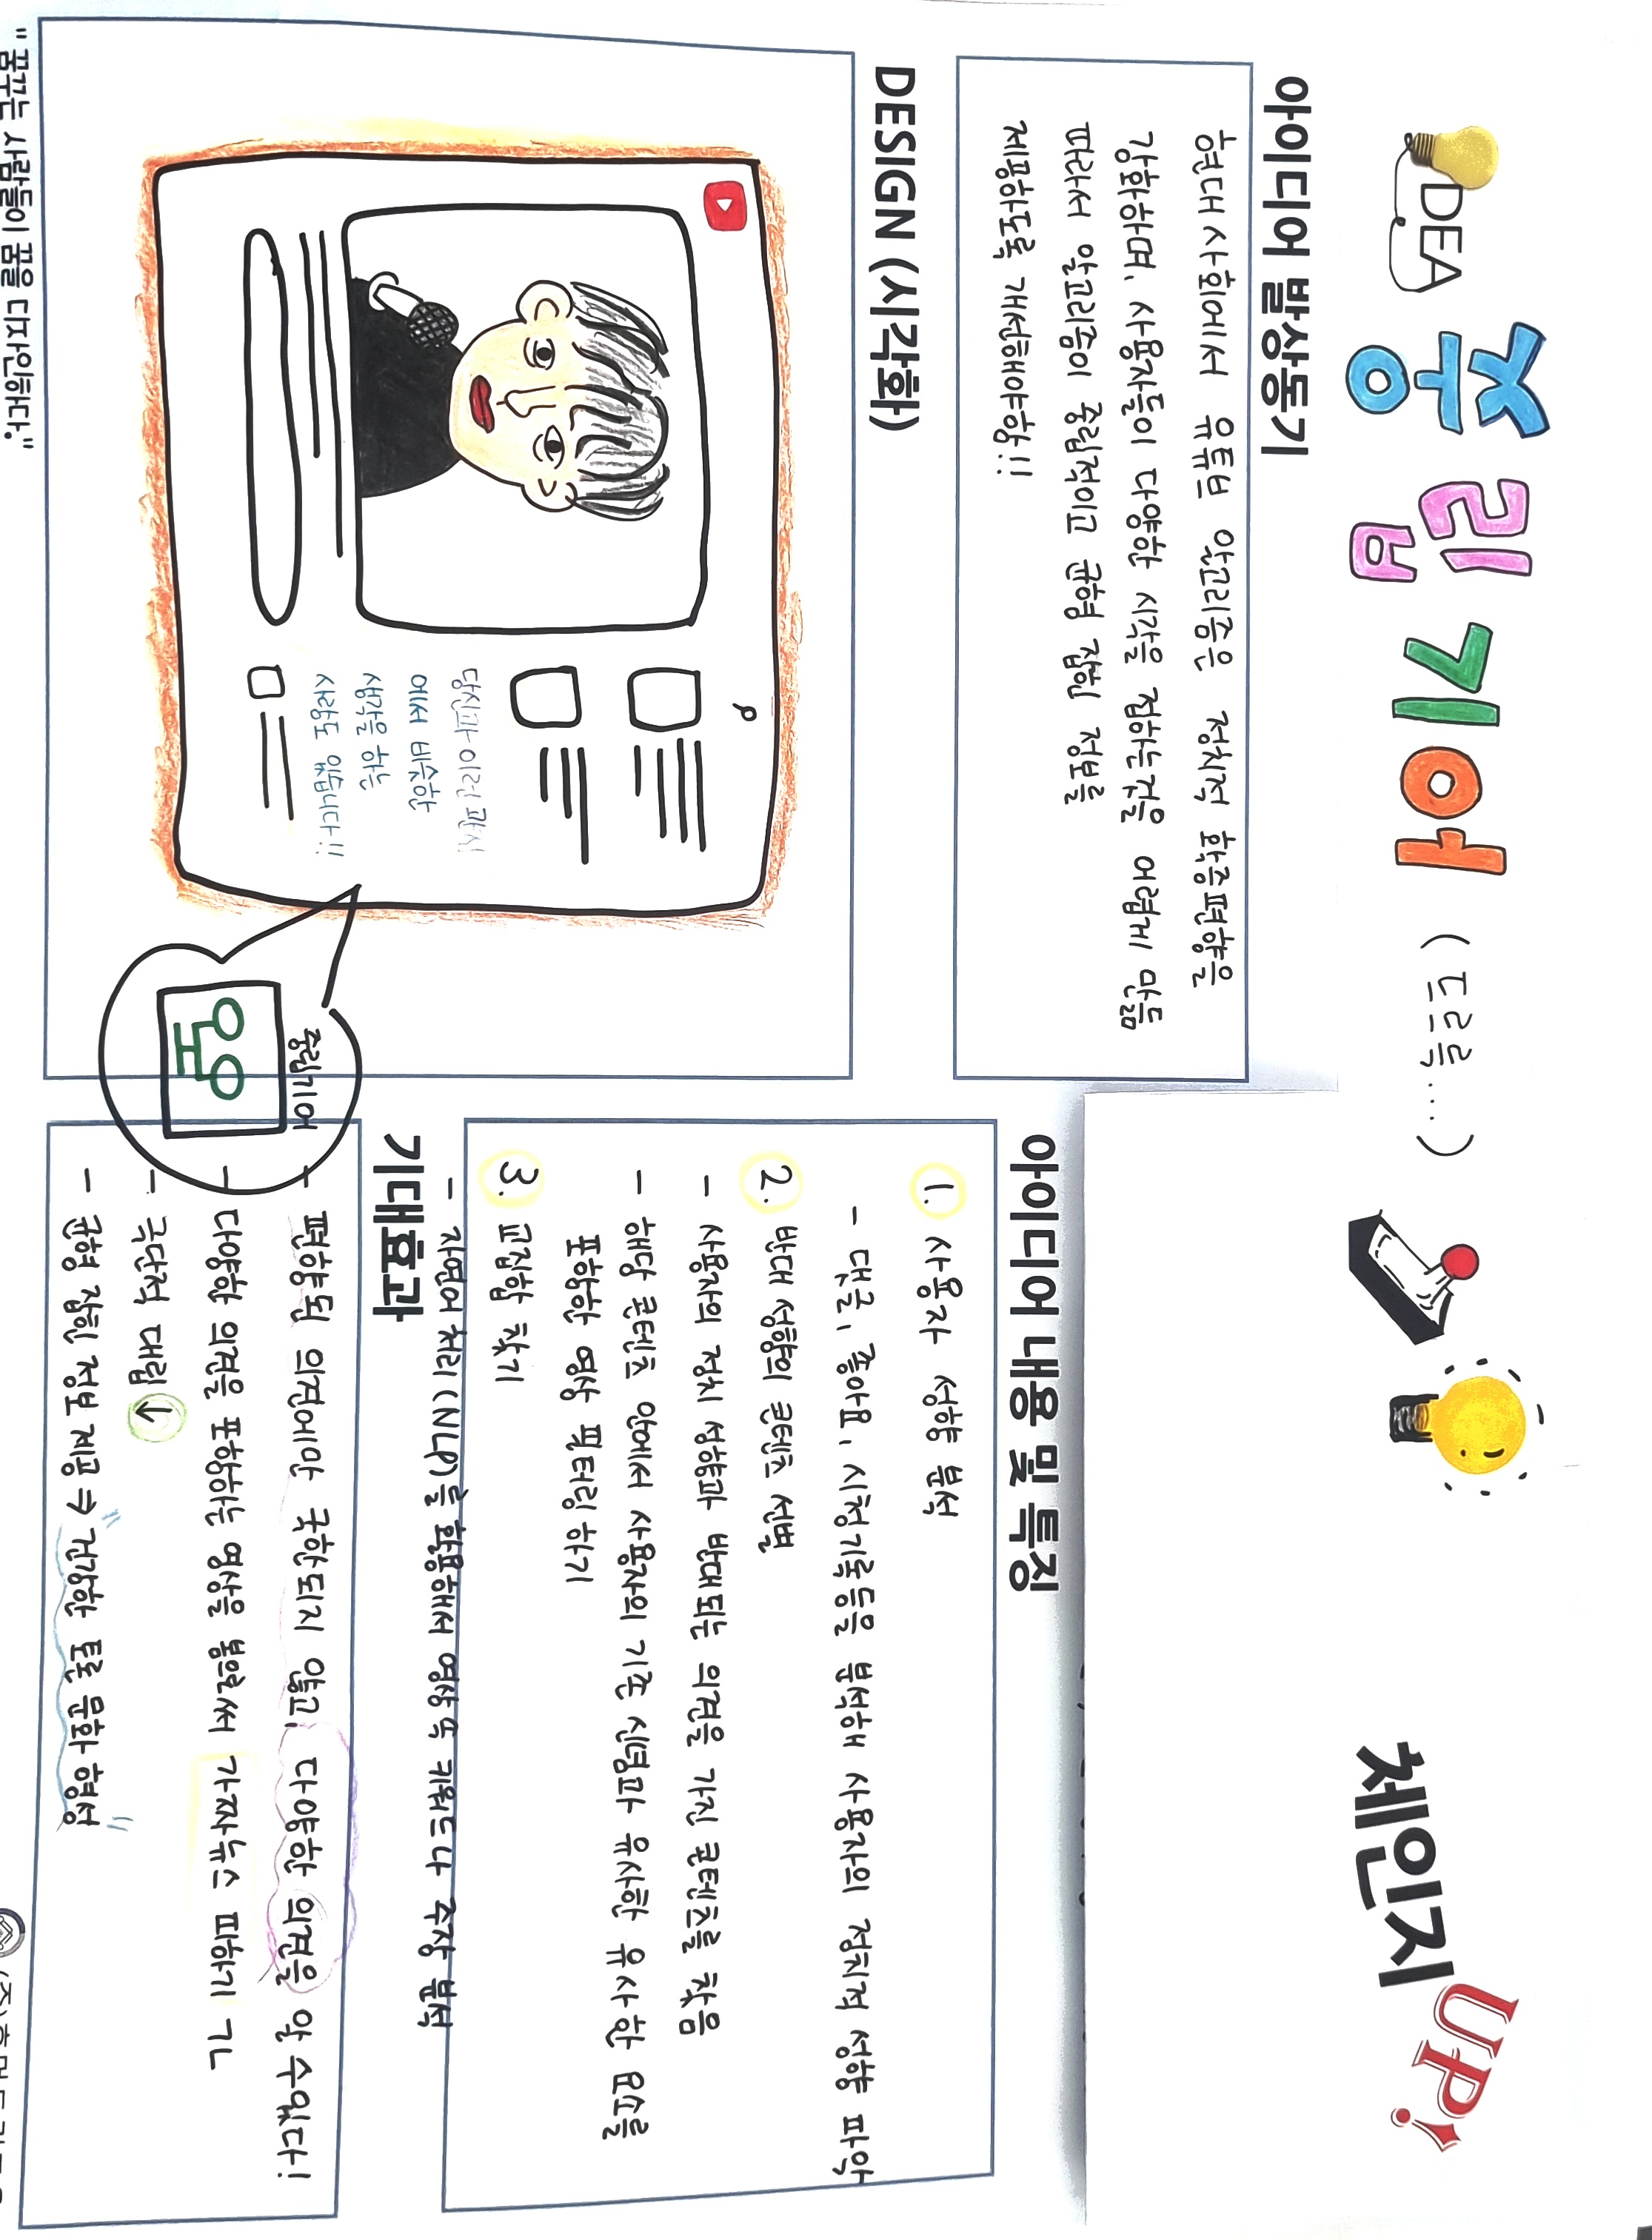 IDEA 중립기어 (드르륵....) 체인지 UP!
아이디어 발상동기
현대 사회에서 유튜브 알고리즘은 정치적 확증편향을
강화하며, 사용자들이 다양한 시각을 접하는것을 어렵게 만듦
따라서 알고리즘이 중립적이고 균형 잡힌 정보를
제공하도록 개선해야함!!
DESIGN (시각화)
당신과 이런 관점
에서 비슷한
생각을 하는
사람도 있습니다!!
중립기어
아이디어 내용 및 특징
1. 사용자 성향 분석
- 댓글, 좋아요, 시청기록등을 분석해 사용자의 정치적 성향 파악
2. 반대 성향의 콘텐츠 선별
- 사용자의 정치 성향과 반대되는 의견을 가진 콘텐츠를 찾음
- 해당 콘텐츠 안에서 사용자의 기존 신념과 유사한 유사한 요소를
포함한 영상 필터링 하기
3. 교집합 찾기
- 자연어 처리(NLP)을 활용해서 영상 속 키워드나 주장 분석
기대효과
- 편향된 의견에만 국한되지 않고, 다양한 의견을 알 수있다!
- 다양한 의견을 포함하는 영상을 봄으로써 가짜뉴스 피하기 가능
- 극단적 대립 ↓
- 균형 잡힌 정보 제공 ⇒ "건강한 토론 문화 형성"
"꿈꾸는 사람들이 꿈을 디자인하다."